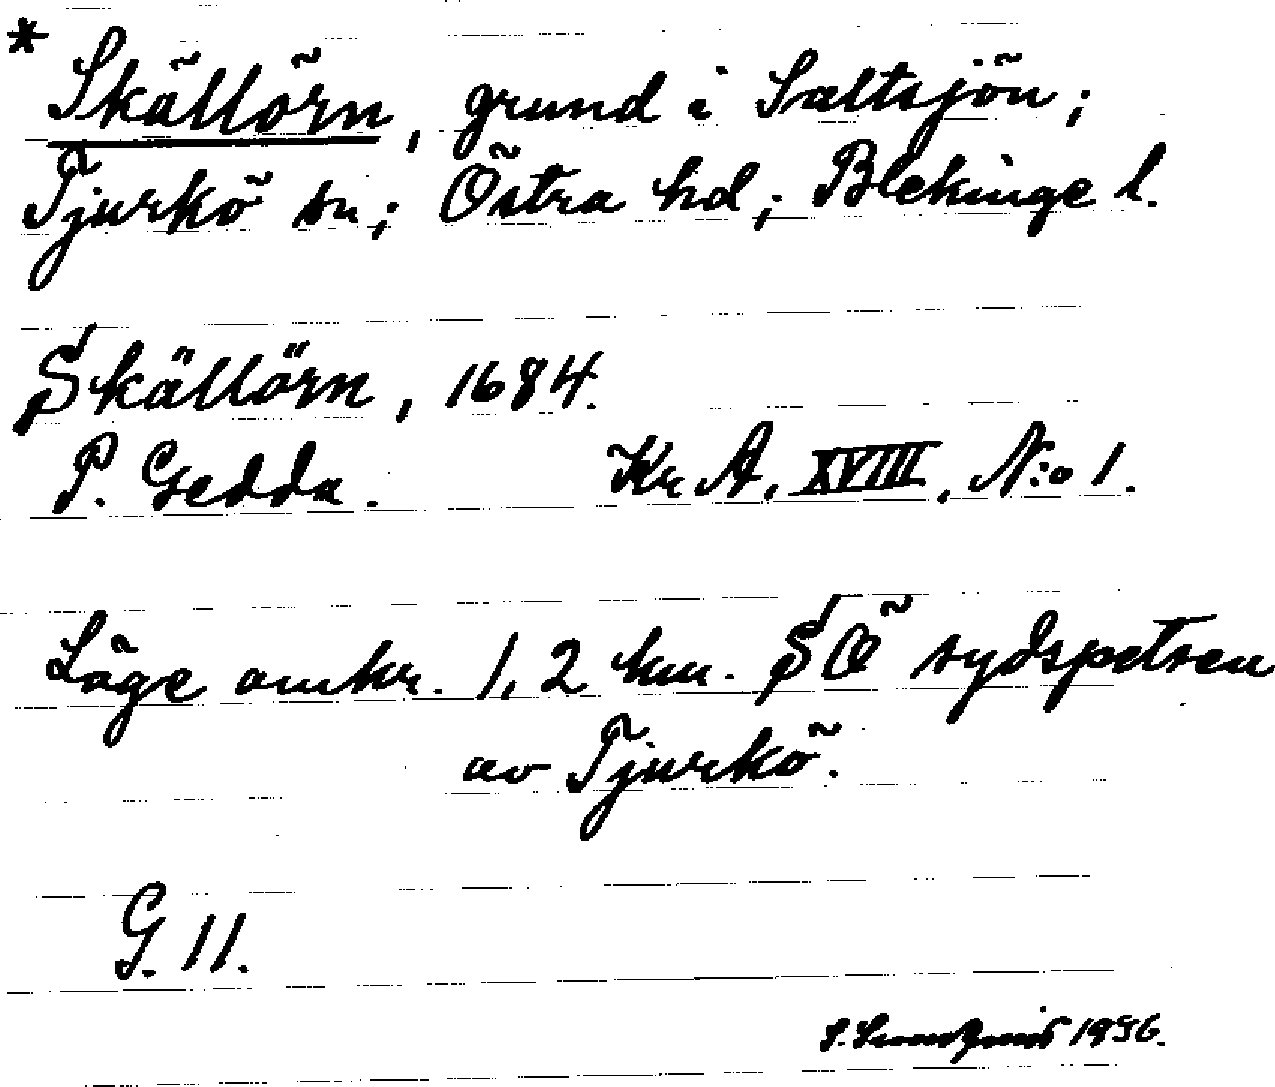 * Skällörn, grund i Saltsjön;
Tjurkö sn; Östra hd; Blekinge l.
Skällörn, 1684.
P. Gedda. Kr A, XVIII, N:o 1.
Läge omkr. 1,2 km. SÖ sydspetsen
av Tjurkö.
G. 11.
S. 1956.